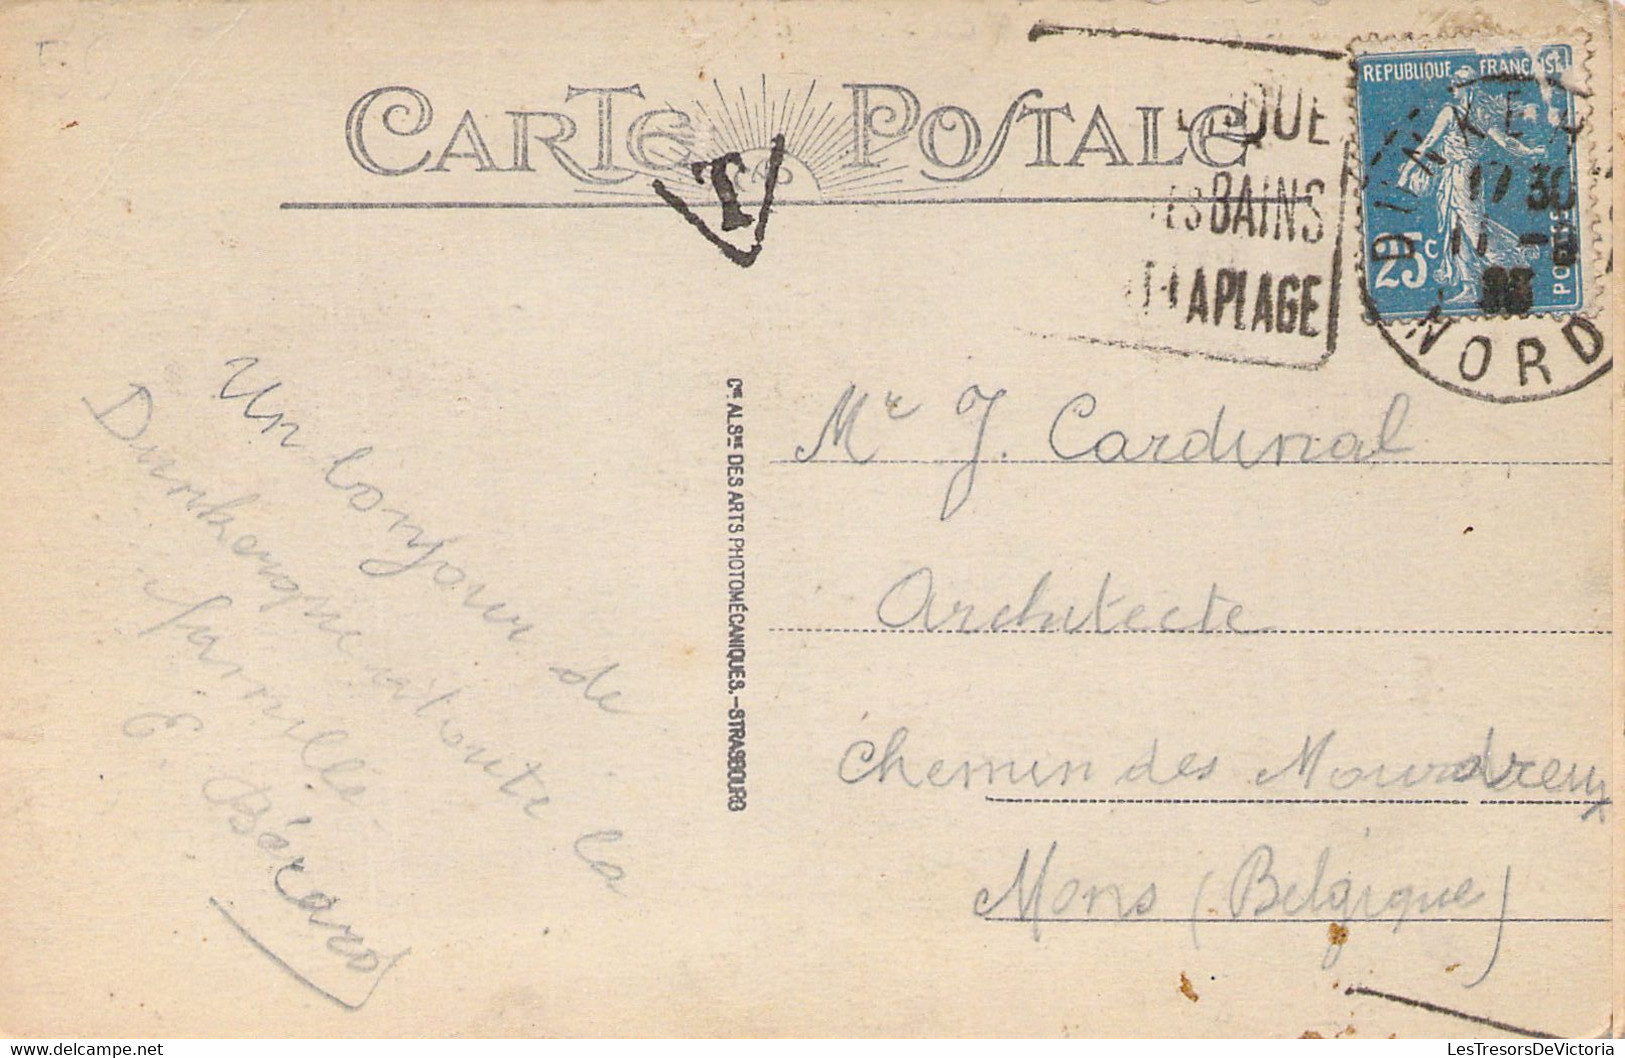 CARTE POSTALE
T
QUE
LES BAINS
LA PLAGE
REPUBLIQUE FRANÇAISE
25c
POSTES
DUNKE
17 30
17 -
NORD
Un bonjour de
Dunkerque à toute la
famille
E. Bécard
CIE ALSNE DES ARTS PHOTOMÉCANIQUES.-STRASBOURG
Mr J. Cardinal
Architecte
Chemin des Mourdreux
Mons (Belgique)
LesTresorsDeVictoria.com